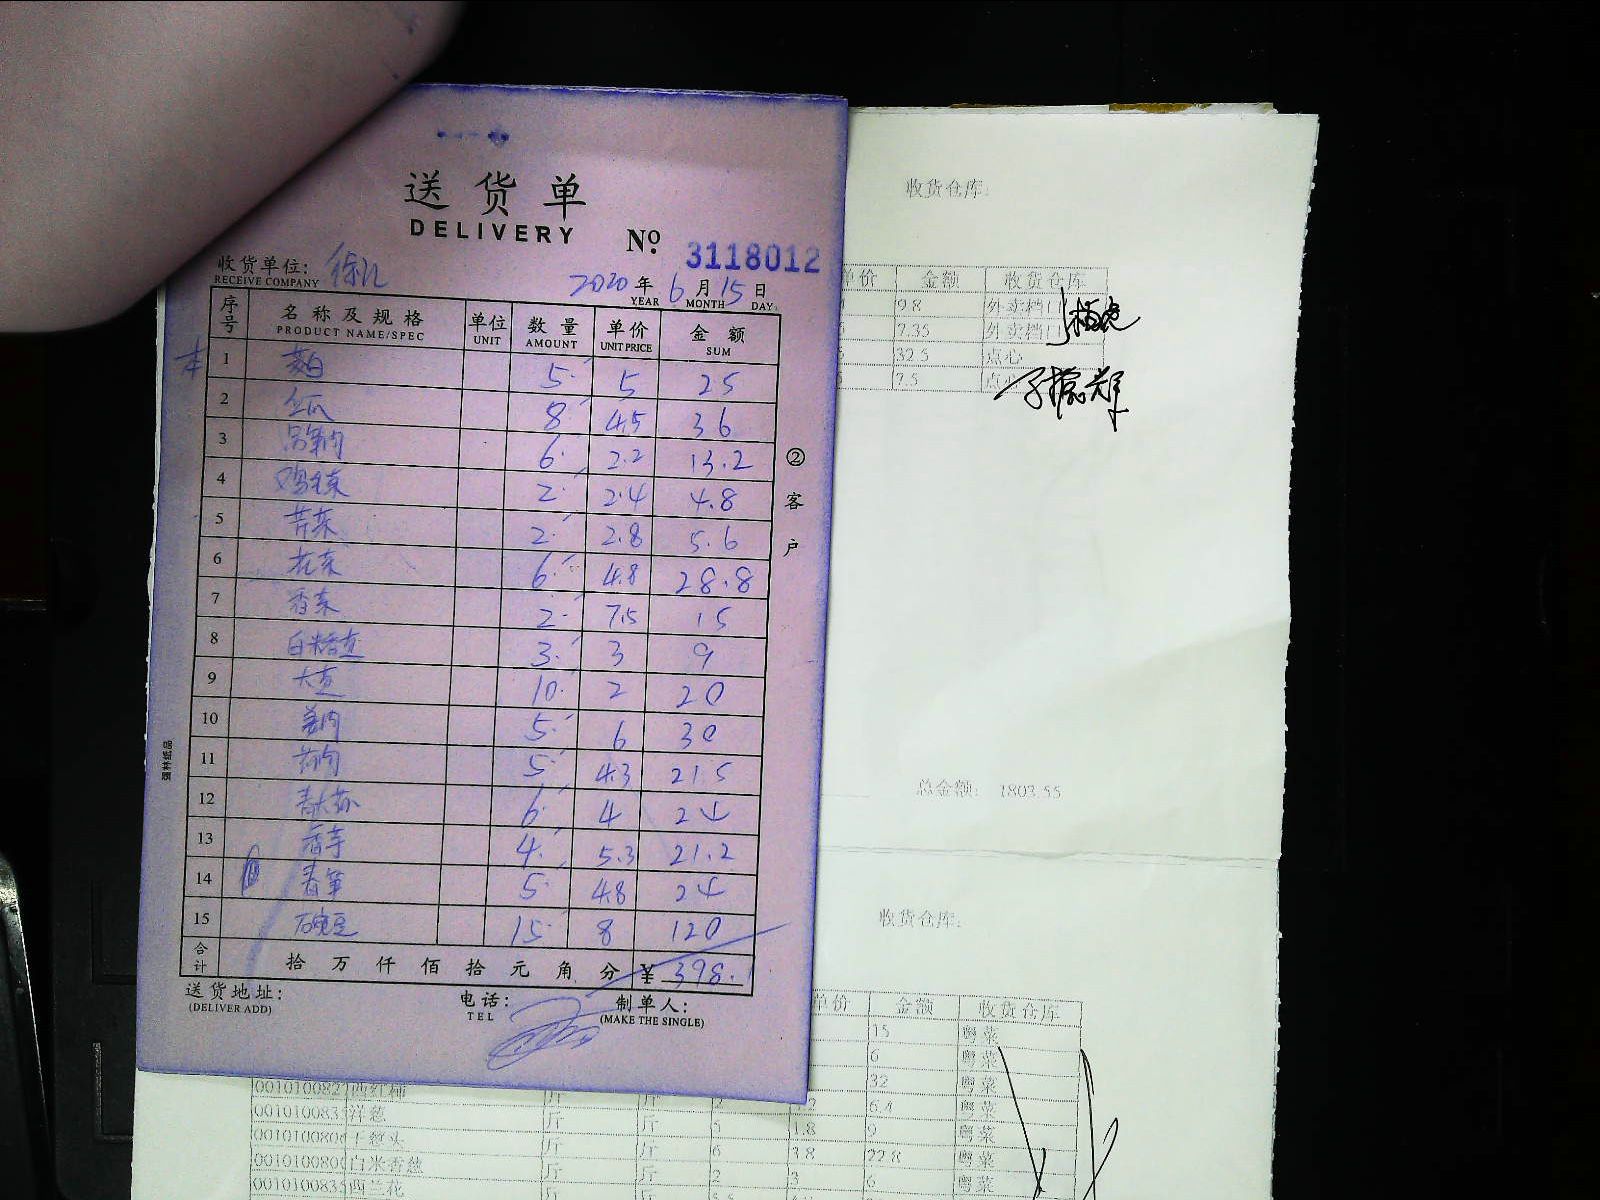 送货单
DELIVERY
№ 3118012
收货单位:
RECEIVE COMPANY
2020 年 6 月 15 日
YEAR MONTH DAY
序号 名称及规格 单位 数量 单价 金额
PRODUCT NAME/SPEC UNIT AMOUNT UNIT PRICE SUM
1 茭白 5 5 25
2 8 4.5 36
3 6 2.2 13.2
4 鸡毛菜 2 2.4 4.8
5 2 2.8 5.6
6 花菜 6 4.8 28.8
7 香菜 2 7.5 15
8 3 3 9
9 10 2 20
10 5 6 30
11 5 4.3 21.5
12 6 4 24
13 香芋 4 5.3 21.2
14 春笋 5 4.8 24
15 豌豆 15 8 120
合计 拾万仟佰拾元角分 ¥ 398.
送货地址:
(DELIVER ADD)
电话:
TEL
制单人:
(MAKE THE SINGLE)
②客户
收货仓库:
单价 金额 收货仓库
9.8 外卖档口
7.35 外卖档口
32.5 点心
7.5 点心
总金额: 1803.55
收货仓库:
单价 金额 收货仓库
15 粤菜
6 粤菜
32 粤菜
西红柿 斤 斤 2 6.4 粤菜
洋葱 斤 斤 5 1.8 9 粤菜
斤 斤 6 3.8 22.8 粤菜
白米香葱 斤 斤 2 3 6 粤菜
西兰花 斤 斤